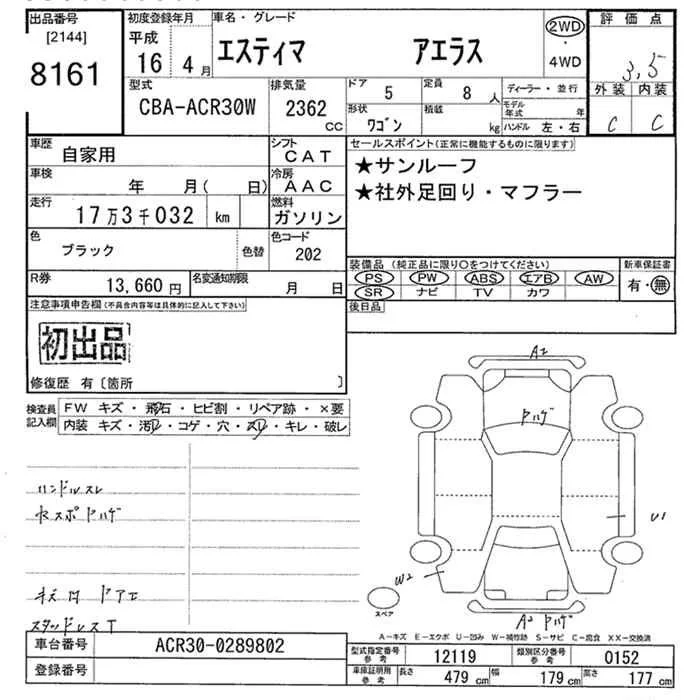 出品番号
[2144]
8161
初度登録年月
平成
16 4月
車名・グレード
エスティマ アエラス
2WD
・
4WD
評価点
3,5
外装 内装
C C
型式
CBA-ACR30W
排気量
2362
CC
ドア
5
定員
8人
形状
ワゴン
積載
kg
ディーラー・並行
モデル
年式 年
ハンドル 左・右
車歴
自家用
シフト
CAT
車検
年 月( 日)
冷房
AAC
走行
17万3千032 km
燃料
ガソリン
色
ブラック
色替
色コード
202
R券
13,660円
名変通知期限
月 日
セールスポイント(正常に機能するものに限ります)
★サンルーフ
★社外足回り・マフラー
装備品(純正品に限り〇をつけてください)
PS PW ABS エアB AW
SR ナビ TV カワ
新車保証書
有・無
後日品
注意事項申告欄(不具合内容等は具体的に記入して下さい)
初出品
修復歴 有〔箇所 〕
検査員
記入欄
FW キズ・飛石・ヒビ割・リペア跡・×要
内装 キズ・汚れ・コゲ・穴・スレ・キレ・破レ
ハンドルスレ
スタッドレスT
A2
U1
W2
スペア
A2
A-キズ E-エクボ U-凹み W-補修跡 S-サビ C-腐食 XX-交換済
車台番号
ACR30-0289802
登録番号
型式指定番号
参考
12119
類別区分番号
参考
0152
車庫証明用
参考
長さ 479 cm 幅 179 cm 高さ 177 cm